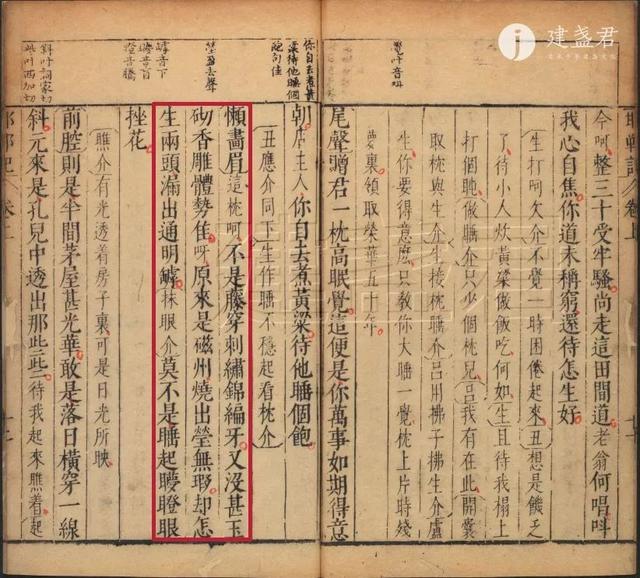 建盞君
覺叶音
你自去煮黃
粱待他睡個
飽句佳
瑩去聲
罅音下
音盲
瞪音
斜叶詞家切
些叶西加切
卷上
今呵整三十受牢騷尚走這田間道老翁何唱叫
我心自焦你道未稱窮還待怎生好
生打呵欠介不覺一時困倦起來丑想是饑乏
了待小人炊黃粱做飯吃何如生且待我榻上
打個盹做介只少個枕兒呂我有在此開囊
取枕與生介生接枕睡介呂用拂子拂生介盧
生你要得意麽只教你大睡一覺枕上片時殘
夢裏領取榮華五十年
尾聲贈君一枕高眠覺這便是你萬事如期得意
朝店主人你自去煮黃粱待他睡個飽
丑應介同下生作睡不穩起看枕介
懶畫眉這枕呵不是藤穿刺繡錦編牙又沒甚玉
切香雕體勢佳呀原來是磁州燒出瑩無瑕却怎
生兩頭漏出通明罅抹眼介莫不是睡起矇瞪眼
挫花
瞧介有光透着房子裏可是日光所映
前腔則是半間茅屋甚光華敢是落日橫穿一線
斜元來是孔兒中透出那些些待我起來瞧着起